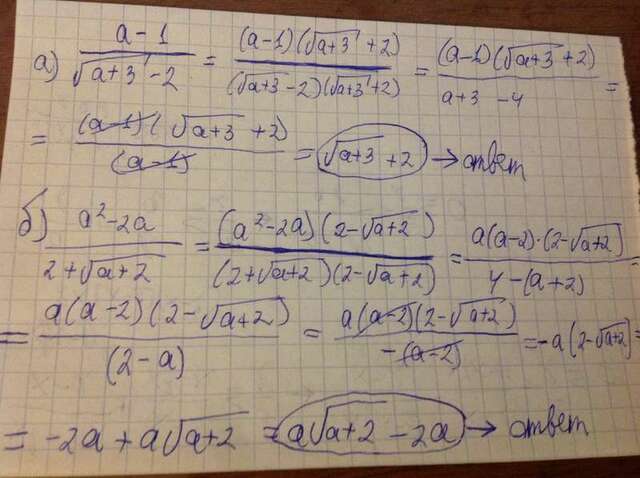 а) (a-1)/(√(a+3) - 2) = ((a-1)(√(a+3) + 2))/((√(a+3) - 2)(√(a+3) + 2)) = ((a-1)(√(a+3) + 2))/(a+3 - 4) =
= ((a-1)(√(a+3) + 2))/(a-1) = √(a+3) + 2 → ответ
б) (a²-2a)/(2+√(a+2)) = ((a²-2a)(2-√(a+2)))/((2+√(a+2))(2-√(a+2))) = (a(a-2)·(2-√(a+2)))/(4-(a+2)) =
= (a(a-2)(2-√(a+2)))/((2-a)) = (a(a-2)(2-√(a+2)))/(-(a-2)) = -a(2-√(a+2)) =
= -2a + a√(a+2) = a√(a+2) - 2a → ответ